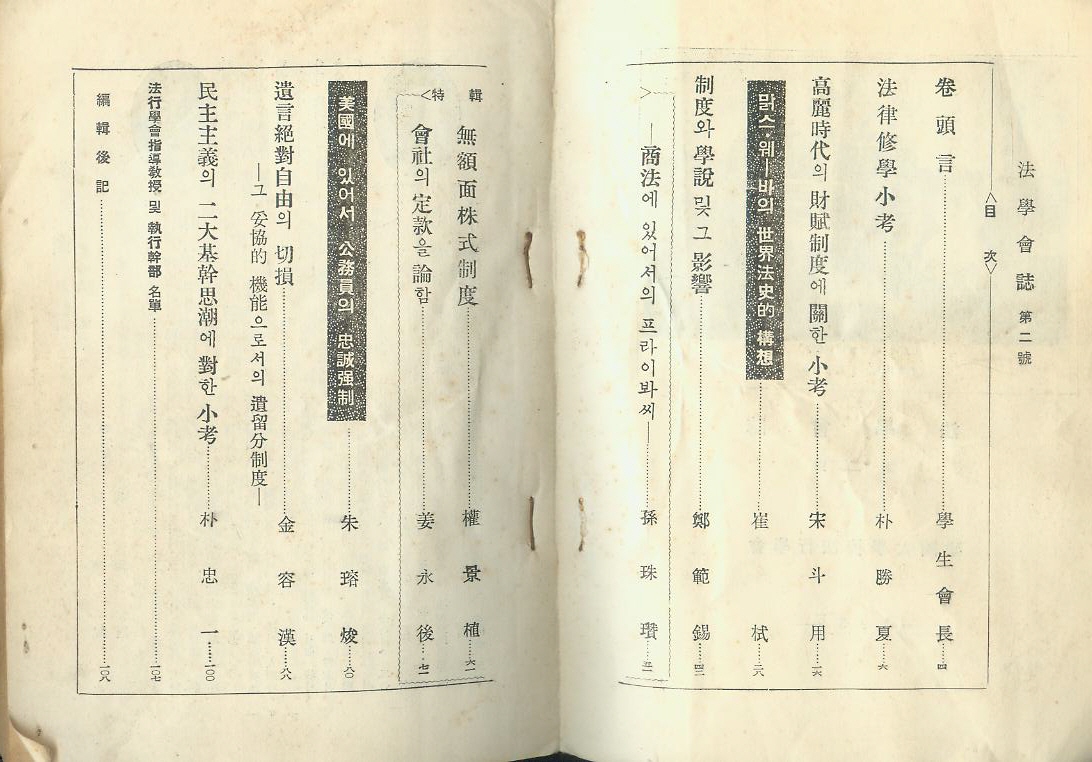 法學會誌 第二號
<目 次>
卷頭言 學生會長 四
法律修學小考 朴勝夏 六
高麗時代의 財賦制度에 關한 小考 宋斗用 一六
맑스·웨—바의 世界法史的 構想 崔栻 二六
制度와 學說 및 그 影響 鄭範錫 四三
—商法에 있어서의 프라이봐씨— 孫珠瓚 五一
<特輯>
無額面株式制度 權景植 六一
會社의 定款을 論함 姜永後 七一
美國에 있어서 公務員의 忠誠强制 朱瑢焌 八〇
遺言絕對自由의 切損 金容漢 八八
—그 妥協的 機能으로서의 遺留分制度—
民主主義의 二大基幹思潮에 對한 小考 朴忠一 一〇〇
法行學會指導敎授 및 執行幹部 名單 一〇七
編輯後記 一〇八